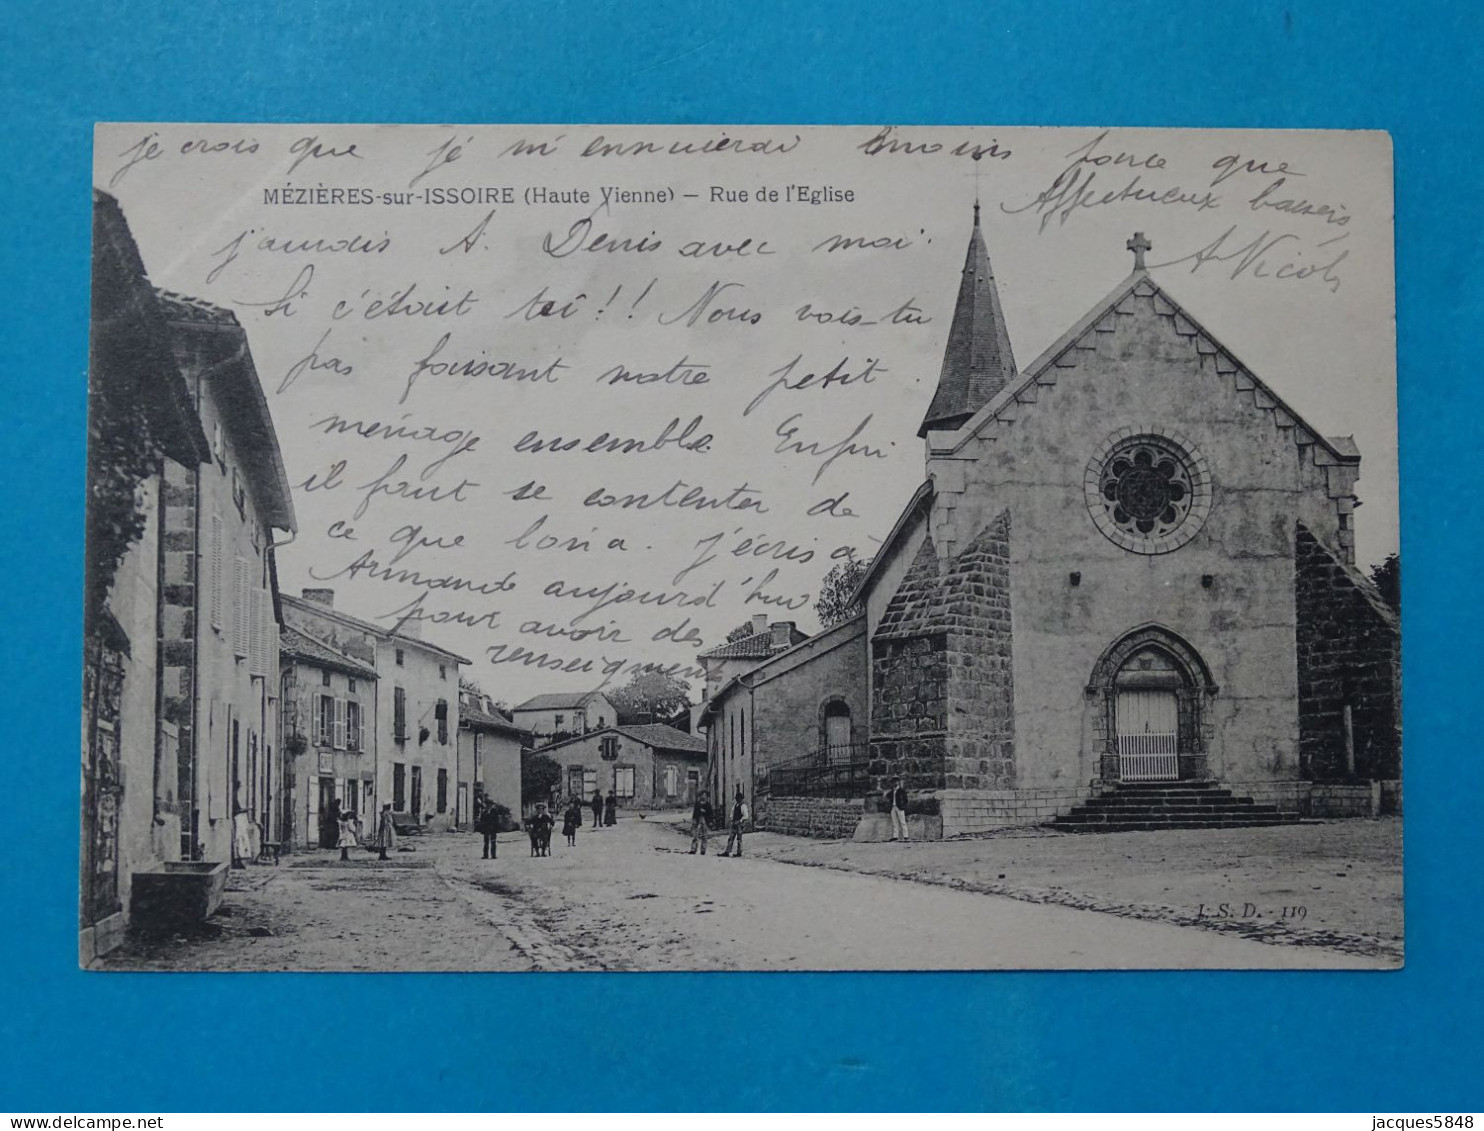 je crois que je m'ennuierai moins parce que
MÉZIÈRES-sur-ISSOIRE (Haute Vienne) — Rue de l'Eglise
j'aurais A. Denis avec moi.
Si c'était toi!! Nous vois-tu
pas faisant notre petit
ménage ensemble. Enfin
il faut se contenter de
ce que l'on a. J'écris à
Armande aujourd'hui
pour avoir des
renseignement
Affectueux baisers
A Nicols
I. S. D. - 119
jacques5848